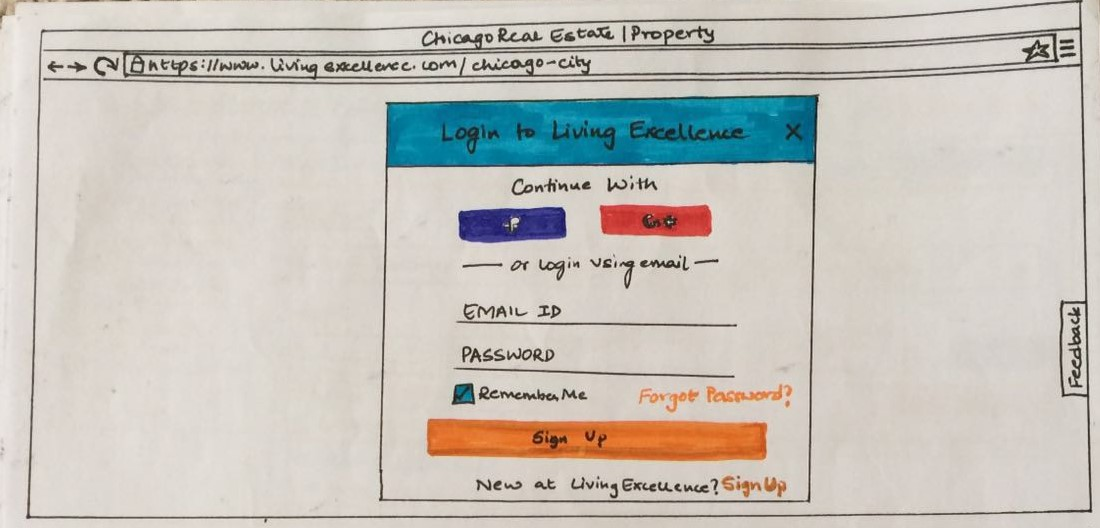 Chicago Real Estate | Property
https://www.livingexcellence.com/chicago-city
Login to Living Excellence X
Continue With
f G+
or login using email
EMAIL ID
PASSWORD
Remember Me Forgot Password?
Sign Up
New at Living Excellence? Sign Up
Feedback